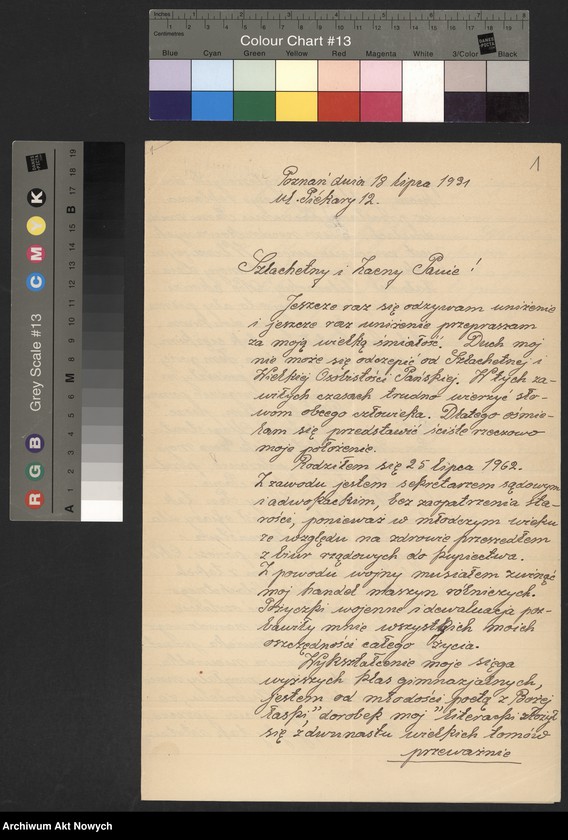 Inches 1 2 3 4 5 6 7 8
Centimetres 1 2 3 4 5 6 7 8 9 10 11 12 13 14 15 16 17 18 19
Colour Chart #13
DANES PICTA
Blue Cyan Green Yellow Red Magenta White 3/Color Black
Grey Scale #13
R G B C M Y K
A 1 2 3 4 5 6 M 8 9 10 11 12 13 14 15 B 17 18 19
1
Poznań dnia 18 lipca 1931
ul. Piekary 12.
Szlachetny i Zacny Panie!
Jeszcze raz się odzywam uniżenie
i jeszcze raz uniżenie przepraszam
za moją wielką śmiałość. Duch mój
nie może się odczepić od Szlachetnej i
Wielkiej Osobistości Pańskiej. W tych za-
wiłych czasach trudno wierzyć sło-
wom obcego człowieka. Dlatego ośmie-
lam się przedstawić ściśle rzeczowo
moje położenie.
Rodziłem się 25 lipca 1962.
Z zawodu jestem sekretarzem sądowym
i adwokackim, bez zaopatrzenia sta-
rości, ponieważ w młodszym wieku
ze względu na zdrowie przeszedłem
z biur rządowych do kupiectwa.
Z powodu wojny musiałem zwinąć
mój handel maszyn rolniczych.
Pożyczki wojenne i dewaluacja poz-
bawiły mnie wszystkich moich
oszczędności całego życia.
Wykształcenie moje sięga
wyższych klas gimnazjalnych,
jestem od młodości poetą z Bożej
łaski," dorobek mój "literacki złożył
się z dwunastu wielkich tomów
przeważnie
Archiwum Akt Nowych